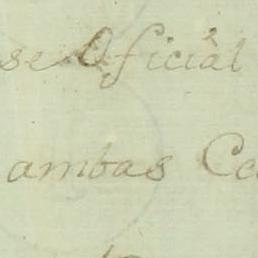 se Oficial
ambas